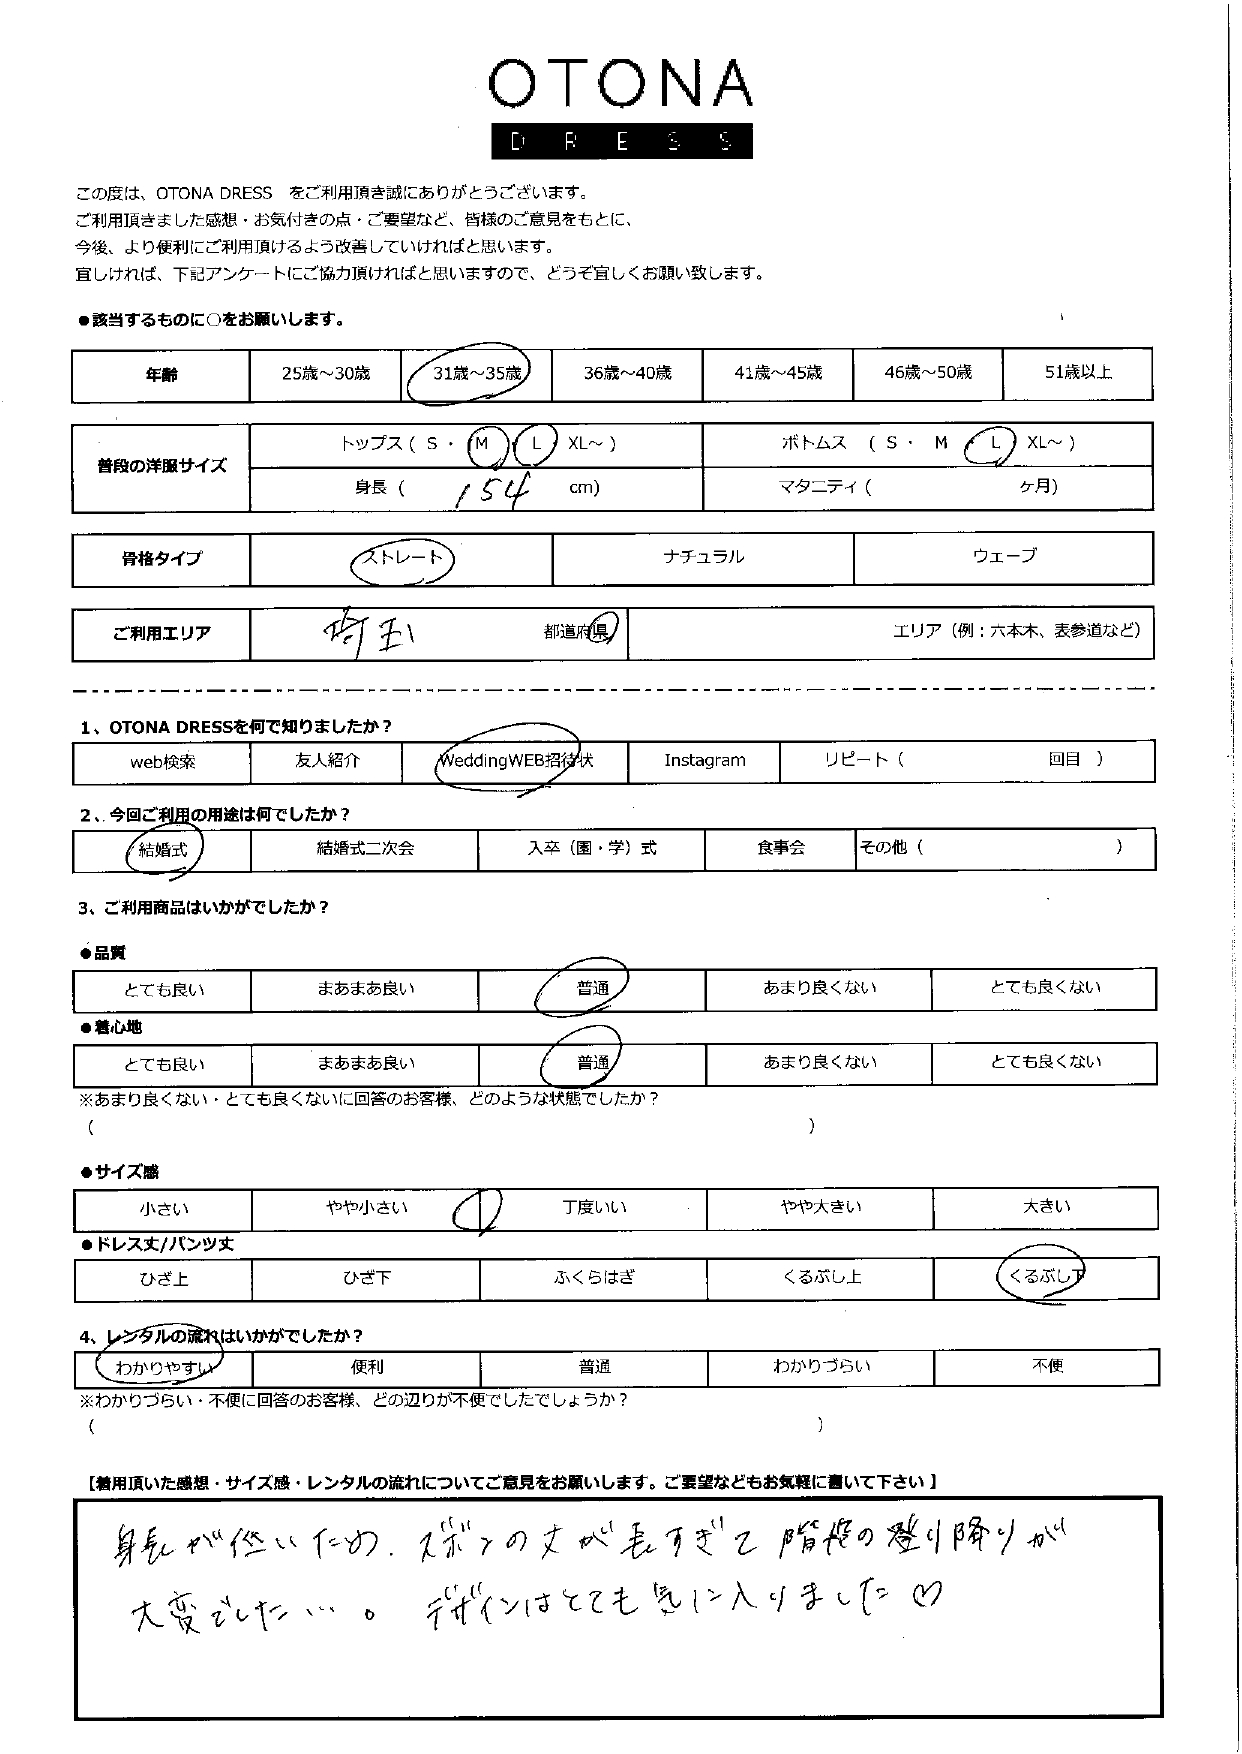 OTONA
DRESS
この度は、OTONA DRESS をご利用頂き誠にありがとうございます。
ご利用頂きました感想・お気付きの点・ご要望など、皆様のご意見をもとに、
今後、より便利にご利用頂けるよう改善していければと思います。
宜しければ、下記アンケートにご協力頂ければと思いますので、どうぞ宜しくお願い致します。
●該当するものに○をお願いします。
年齢 25歳～30歳 31歳～35歳 36歳～40歳 41歳～45歳 46歳～50歳 51歳以上
普段の洋服サイズ トップス ( S ・ M ・ L XL～ ) ボトムス ( S ・ M ・ L XL～ )
身長 ( 154 cm) マタニティ ( ケ月)
骨格タイプ ストレート ナチュラル ウェーブ
ご利用エリア 埼玉 都道府県 エリア（例：六本木、表参道など）
1、OTONA DRESSを何で知りましたか？
web検索 友人紹介 WeddingWEB招待状 Instagram リピート（ 回目 ）
2、今回ご利用の用途は何でしたか？
結婚式 結婚式二次会 入卒（園・学）式 食事会 その他（ ）
3、ご利用商品はいかがでしたか？
●品質
とても良い まあまあ良い 普通 あまり良くない とても良くない
●着心地
とても良い まあまあ良い 普通 あまり良くない とても良くない
※あまり良くない・とても良くないに回答のお客様、どのような状態でしたか？
( )
●サイズ感
小さい やや小さい 丁度いい やや大きい 大きい
●ドレス丈/パンツ丈
ひざ上 ひざ下 ふくらはぎ くるぶし上 くるぶし下
4、レンタルの流れはいかがでしたか？
わかりやすい 便利 普通 わかりづらい 不便
※わかりづらい・不便に回答のお客様、どの辺りが不便でしたでしょうか？
( )
【着用頂いた感想・サイズ感・レンタルの流れについてご意見をお願いします。ご要望などもお気軽に書いて下さい】
身長が低いため、ズボンの丈が長すぎて階段の登り降りが
大変でした…。デザインはとても気に入りました♡